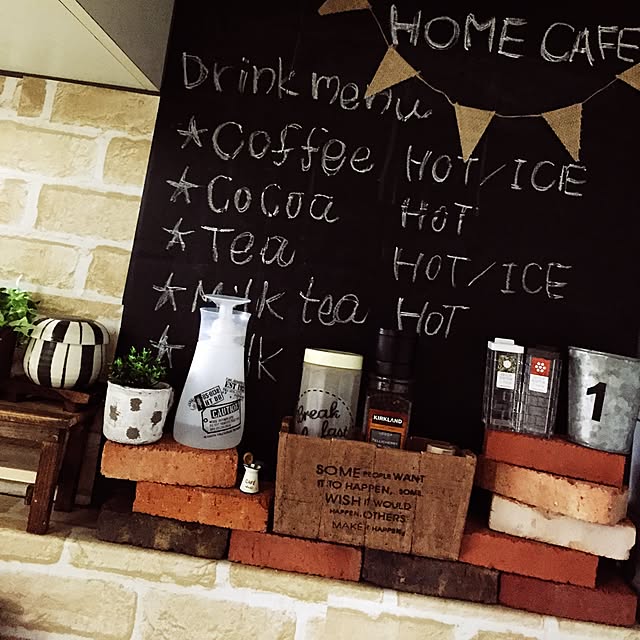 HOME CAFE
Drink menu
☆Coffee HOT/ICE
☆Cocoa HOT
☆Tea HOT/ICE
☆Milk tea HOT
☆
CAUTION
Break
KIRKLAND
1
SOME PEOPLE WANT
IT TO HAPPEN, SOME
WISH IT WOULD
HAPPEN, OTHERS
MAKE IT HAPPEN